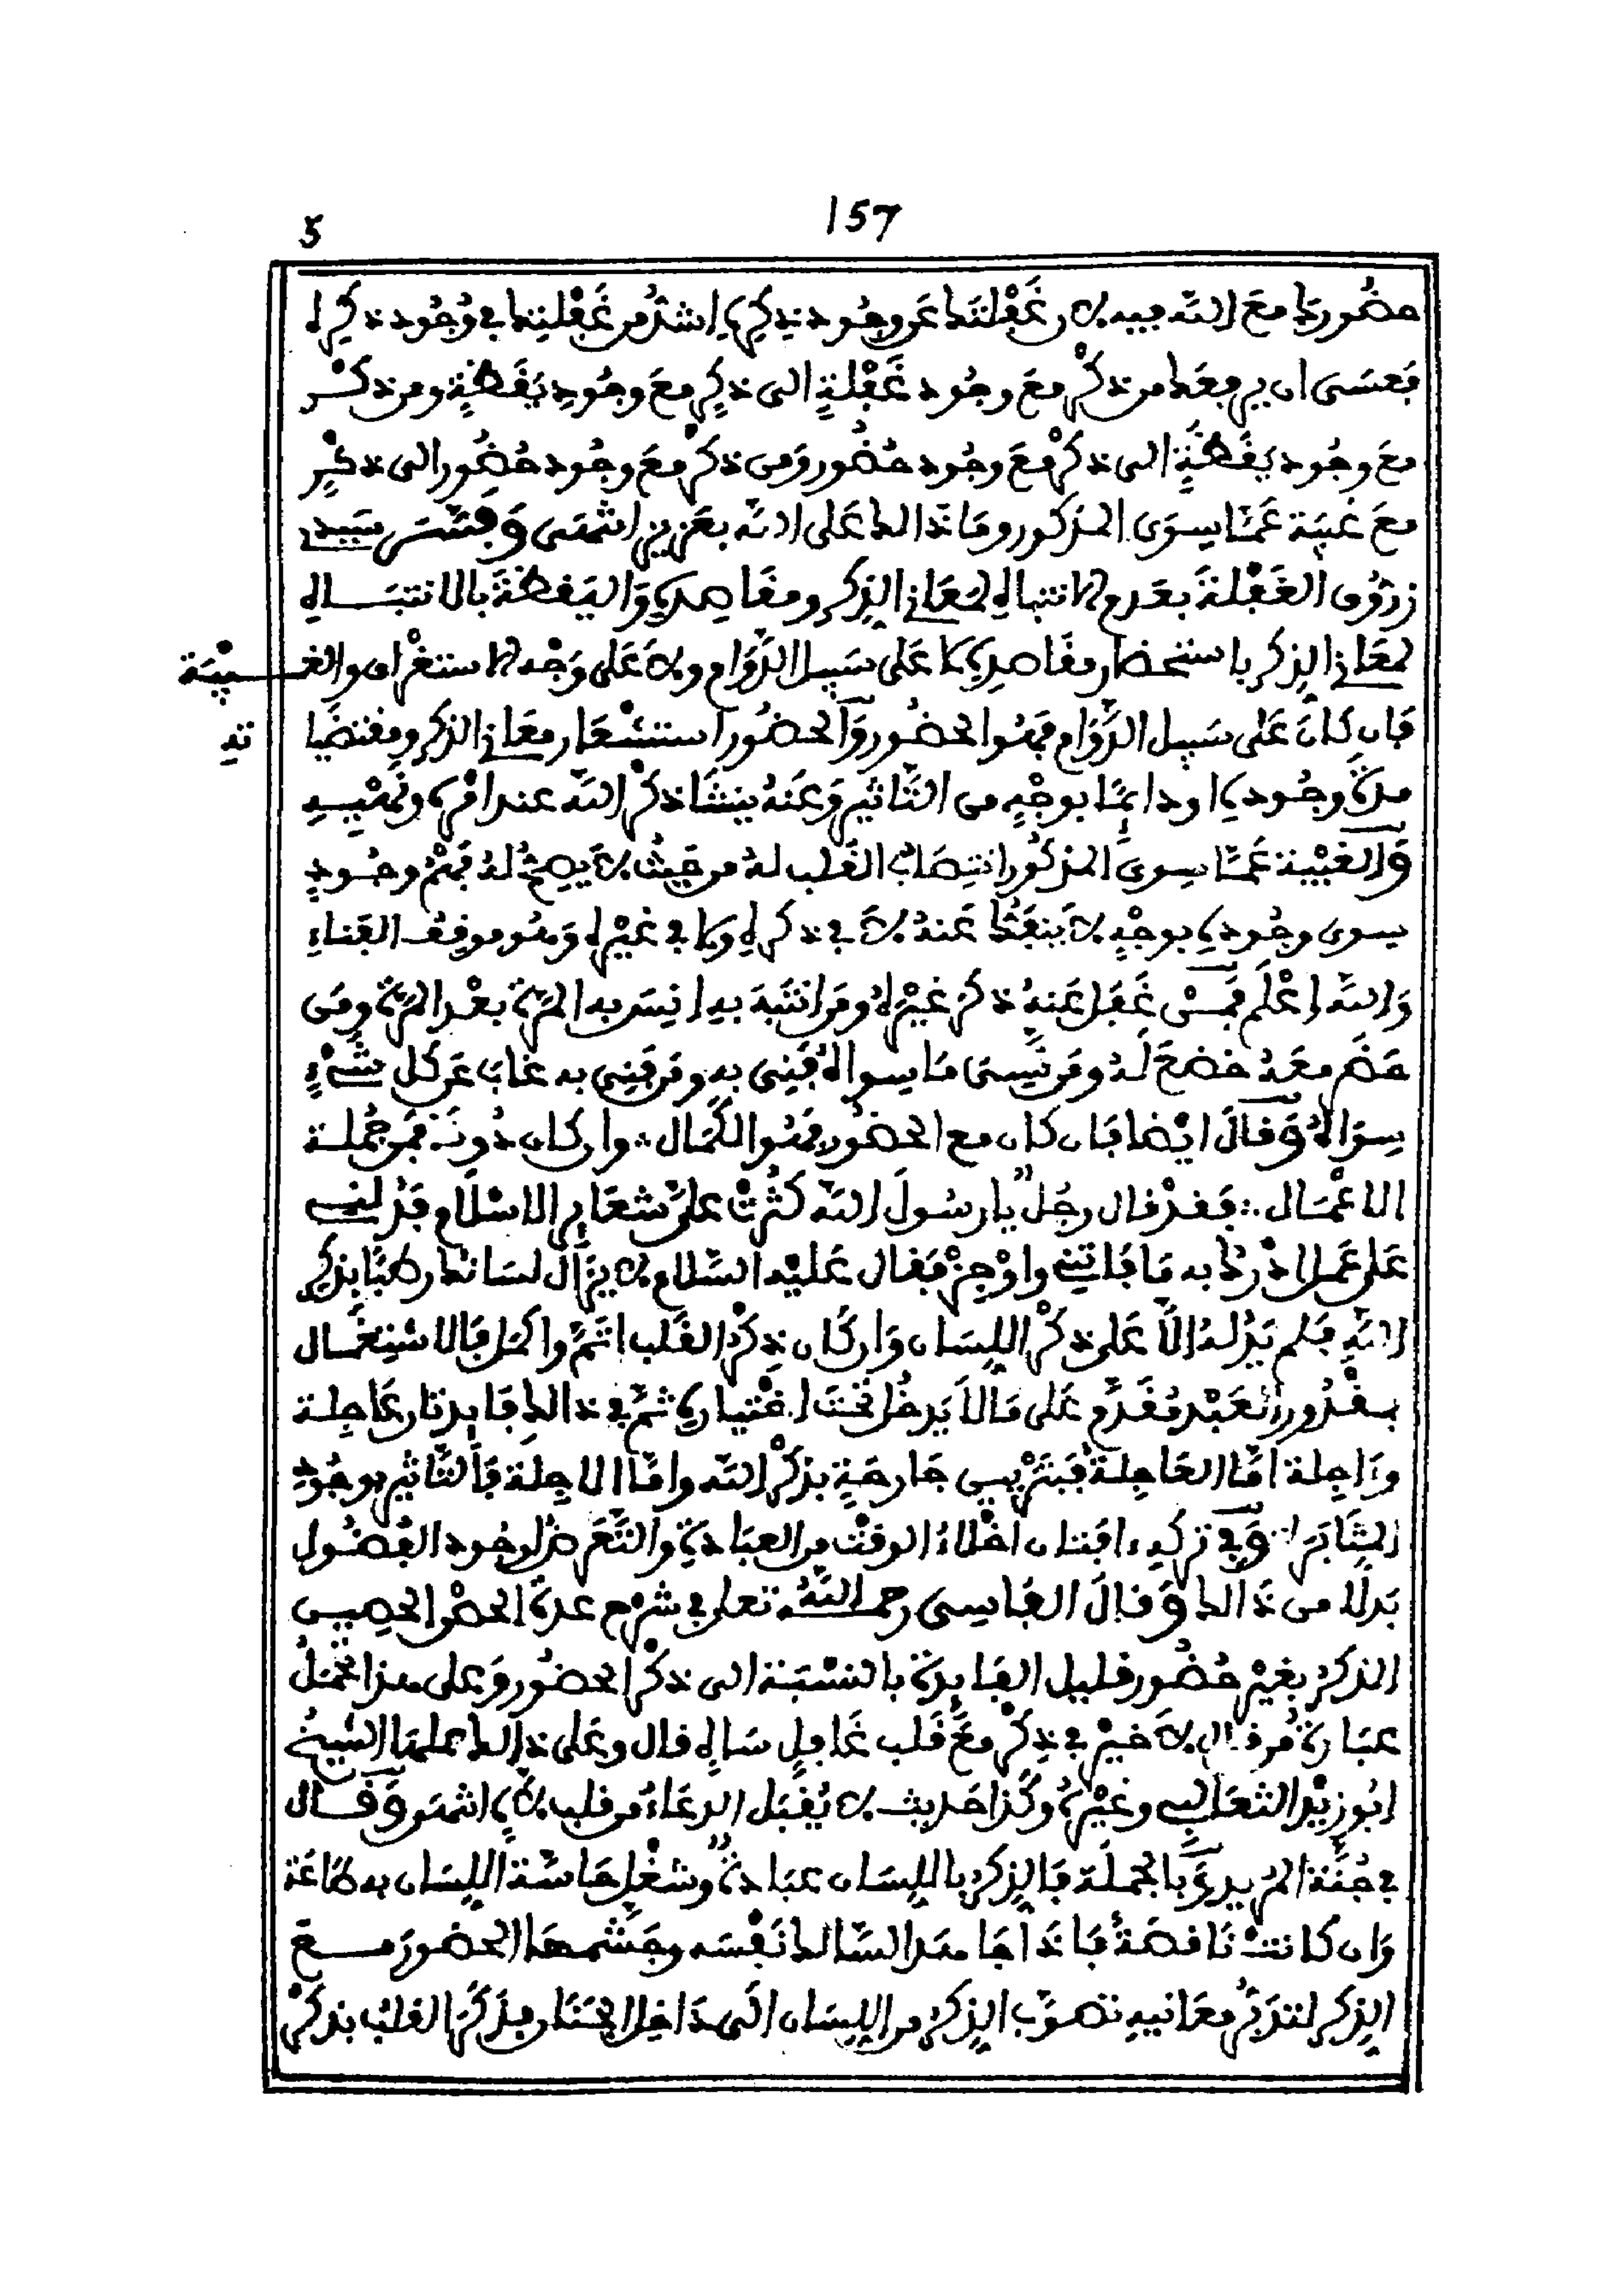 157
5
حضورك مع الله فيه لأن غفلتك عن وجود ذكره أشد من غفلتك في وجود ذكره
فعسى ان يرفعك من ذكر مع وجود غفلة الى ذكر مع وجود يقظة ومن ذكر
مع وجود يقظة الى ذكر مع وجود حضور ومن ذكر مع وجود حضور الى ذكر
مع غيبة عما سوى المذكور وما ذالك على الله بعزيز انتهى وفسر سيدي
زروق الغفلة بعدم الانتباه لمعاني الذكر ومقاصده واليقظة بالانتباه
لمعاني الذكر باستحضار مقاصده لا على سبيل الدوام ولا على وجه الاستغراق والغيبة
فان كان على سبيل الدوام فهو الحضور والحضور استشعار معاني الذكر ومقتضياته
مدة وجوده او دائما بوجه من التأثير وعنه ينشأ ذكر الله عند امره ونهيه
والغيبة عما سوى المذكور انتصاب القلب له من حيث لا يصح له فهم وجود
سوى وجوده بوجه لا ينفك عنه لا في ذكره ولا في غيره وهو موقف الفناء
والله اعلم فمن غفل عنه ذكر غيره ومن انتبه به انس به المرة بعد المرة ومن
حضر معه خضع له ومن نسي ما سواه فني به ومن فني به غاب عن كل شيء
سواه وقال ايضا فان كان مع الحضور فهو الكمال وان كان دونه فمن جملة
الاعمال فقد قال رجل يا رسول الله كثرت علي شعائر الاسلام فدلني
على عمل ادرك به ما فاتني واوجز فقال عليه السلام لا يزال لسانك رطبا بذكر
الله فلم يدله الا على ذكر اللسان وان كان ذكر القلب اتم واكمل فالاشتغال
بمقدور العبد مقدم على ما لا يدخل تحت اختياره ثم في ذالك فايدتان عاجلة
واجلة اما العاجلة فبتزيين جارحة بذكر الله واما الاجلة فالتأثير بوجود
المثابرة وفي تركه افتان اخلاء الوقت من العبادة والتعرض لوجود الفضول
بدلا من ذالك وقال الفاسي رحمه الله تعلى في شرح عدة الحصن الحصين
الذكر بغير حضور قليل الفايدة بالنسبة الى ذكر الحضور وعلى هذا تحمل
عبارة من قال لا خير في ذكر مع قلب غافل ساه قال وعلى ذالك حملها الشيخ
ابو زيد الثعالبي وغيره وكذا حديث لا يقبل الدعاء من قلب لاه انتهى وقال
في جنة المريد وبالجملة فالذكر باللسان عبادة وشغل حاسة اللسان به طاعة
وان كانت ناقصة فاذا جاهد السالك نفسه وجشمها الحضور مع
الذكر لتدبر معانيه تصوب الذكر من اللسان الى داخل الجنان فذكر القلب بذكر